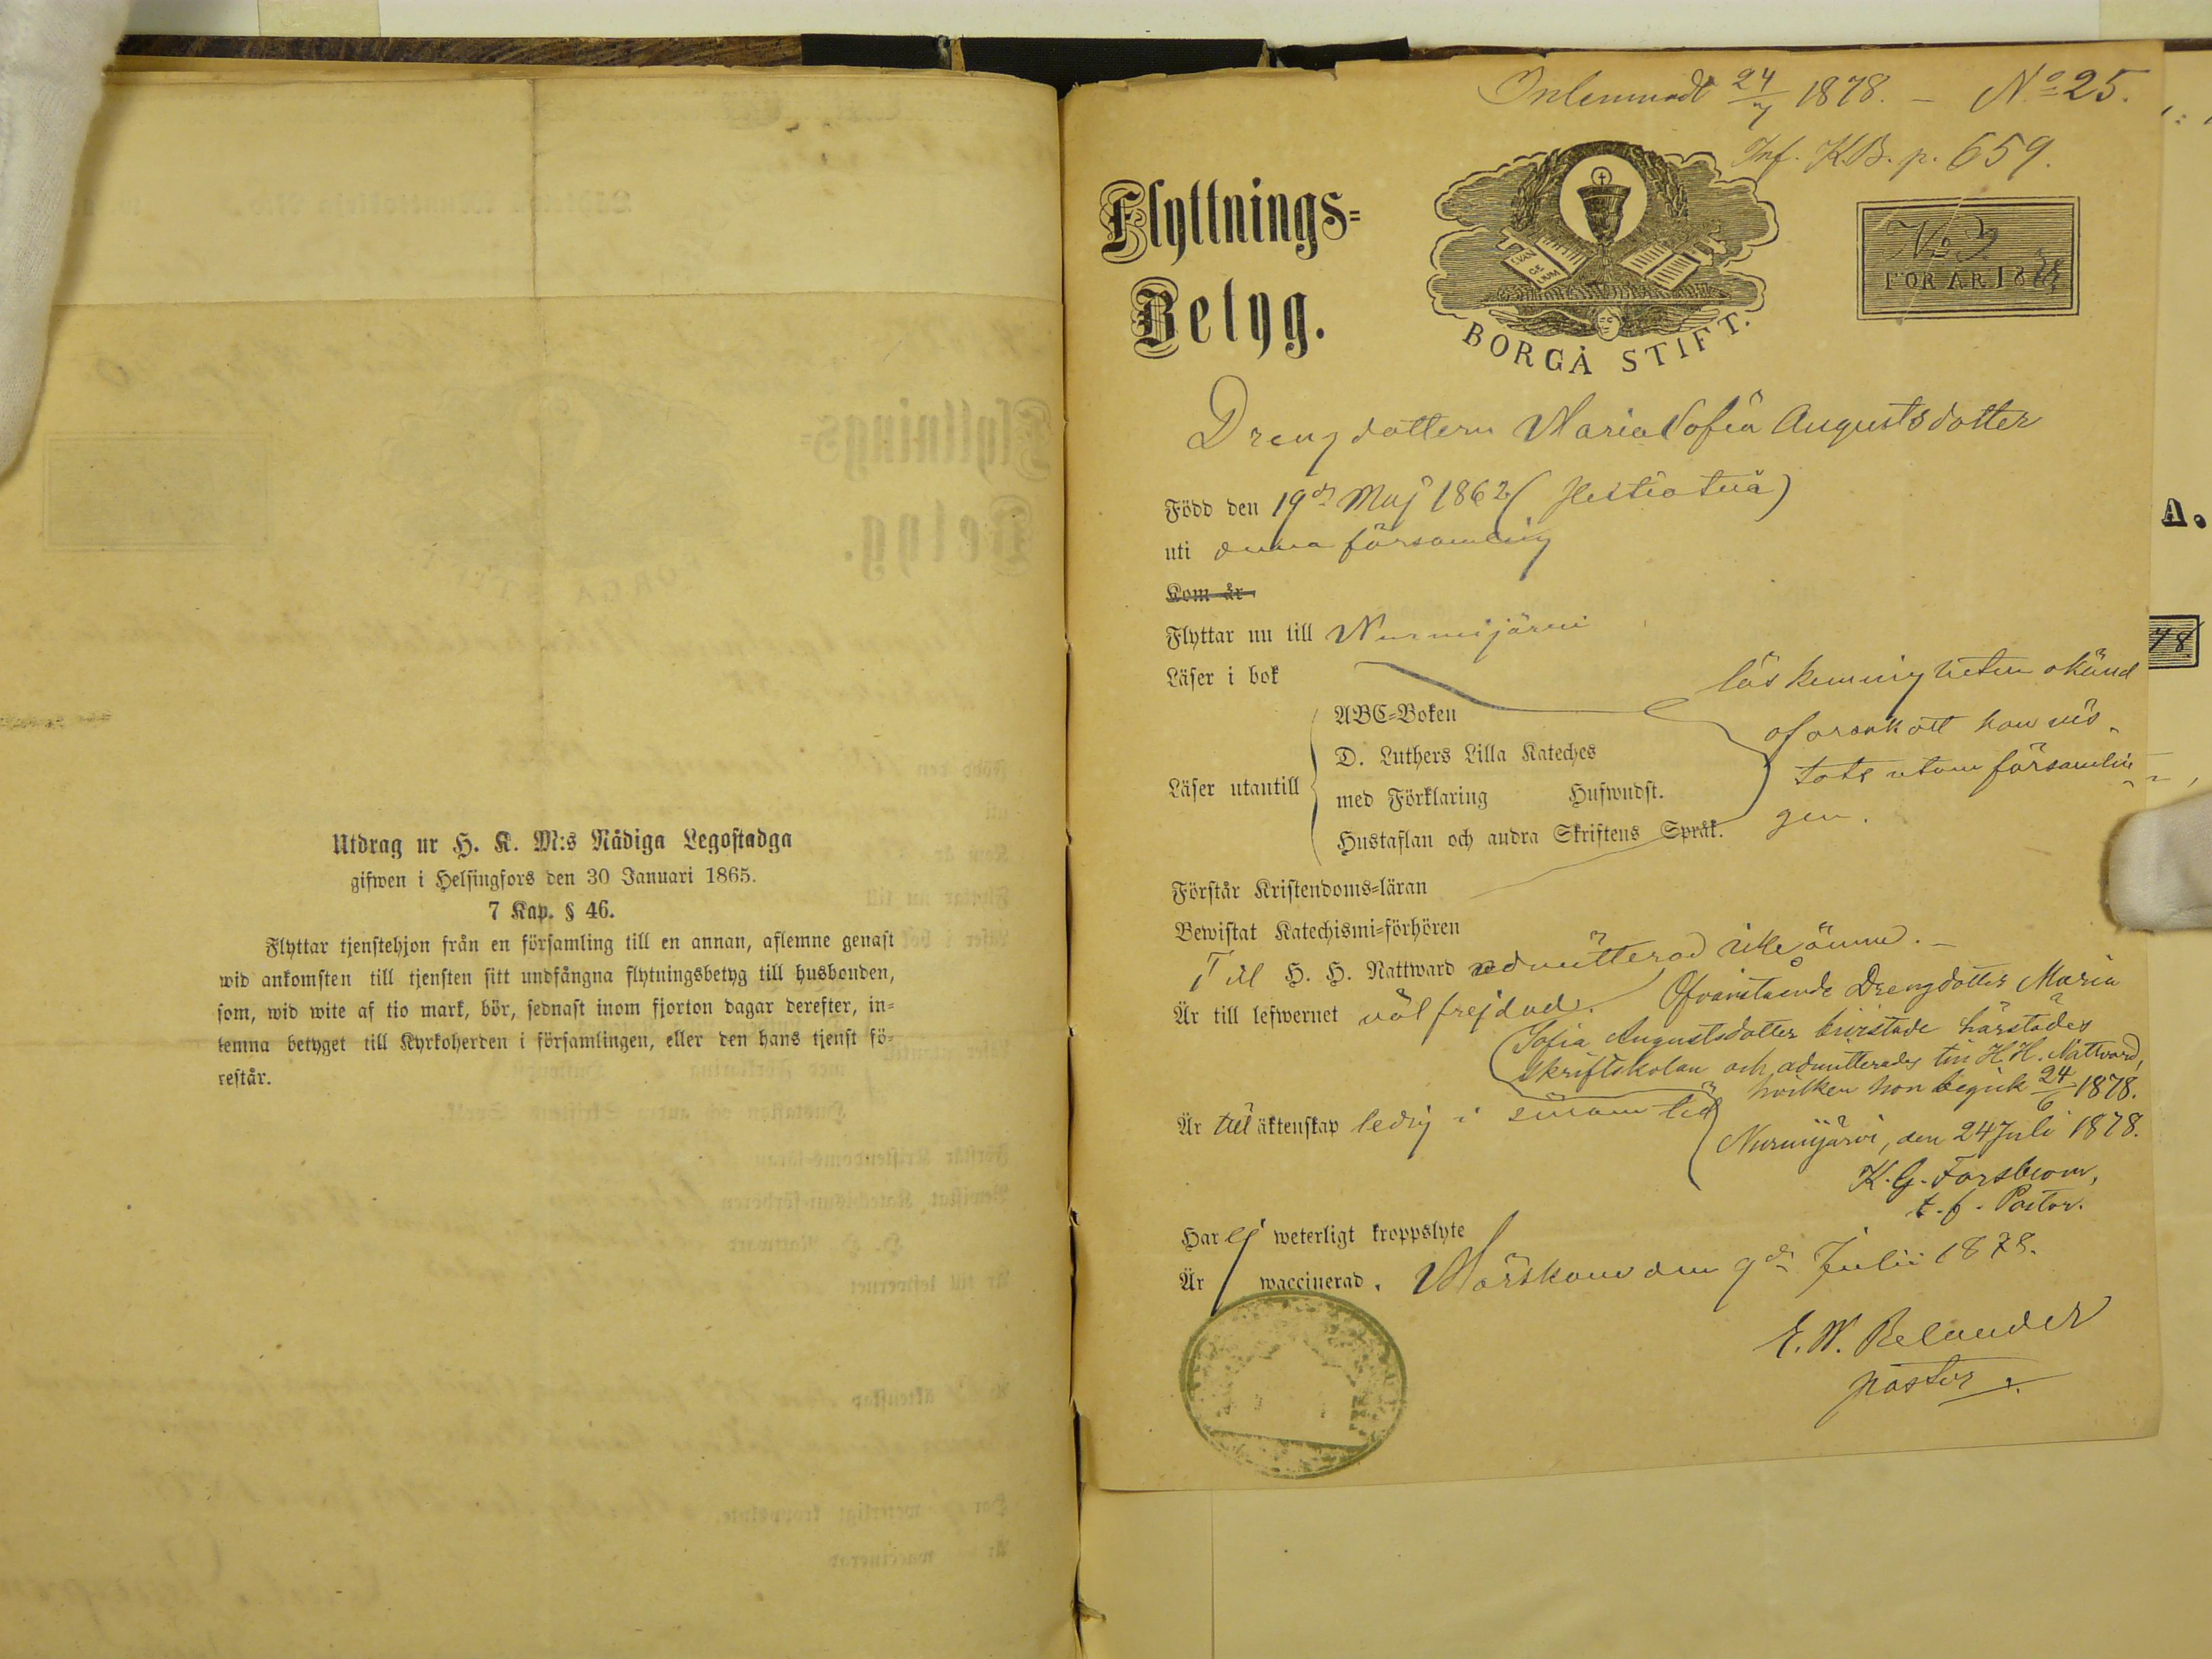 Utdrag ur H. K. M:s Nådiga Legostadga
gifwen i Helsingfors den 30 Januari 1865.
7 Kap. § 46.
Flyttar tjenstehjon från en församling till en annan, aflemne genast
wid ankomsten till tjensten sitt undfångna flytningsbetyg till husbonden,
som, wid wite af tio mark, bör, sednast inom fjorton dagar derefter, in-
lemna betyget till Kyrkoherden i församlingen, eller den hans tjenst fö-
restår.
Inlemnadt 24/7 1878. – No 25.
Inf. K.B. p. 659.
Flyttnings-
Betyg.
EVAN
GE
LIUM
BORGÅ STIFT.
No
FÖR ÅR 18
Drengdottern Maria Sofia Augustsdotter
Född den 19de Maj 1862
uti denna församling
Kom år
Flyttar nu till Nurmijärvi
Läser i bok
läskunnigheten okänd
ABC-Boken
D. Luthers Lilla Kateches
Läser utantill
med Förklaring Hufwudst.
Hustaflan och andra Skriftens Språk.
af orsak att hon vis-
tats utom församlin-
gen.
Förstår Kristendoms-läran
Bewistat Katechismi-förhören
Till H. H. Nattward admitterad icke ännu. –
Är till lefwernet välfrejdad.
Ofvanstående Drengdotter Maria
Sofia Augustsdotter bivistade härstädes
skriftskolan och admitterades till H. H. Nattvard,
hvilken hon begick 24/6 1878.
Är till äktenskap ledig i
Nurmijärvi, den 24 Juli 1878.
K. G. Forsblom,
t. f. Pastor.
Har ej weterligt kroppslyte
Är waccinerad. Mörskom den 9de Julii 1878.
E. W. Relander
pastor.
A.
78